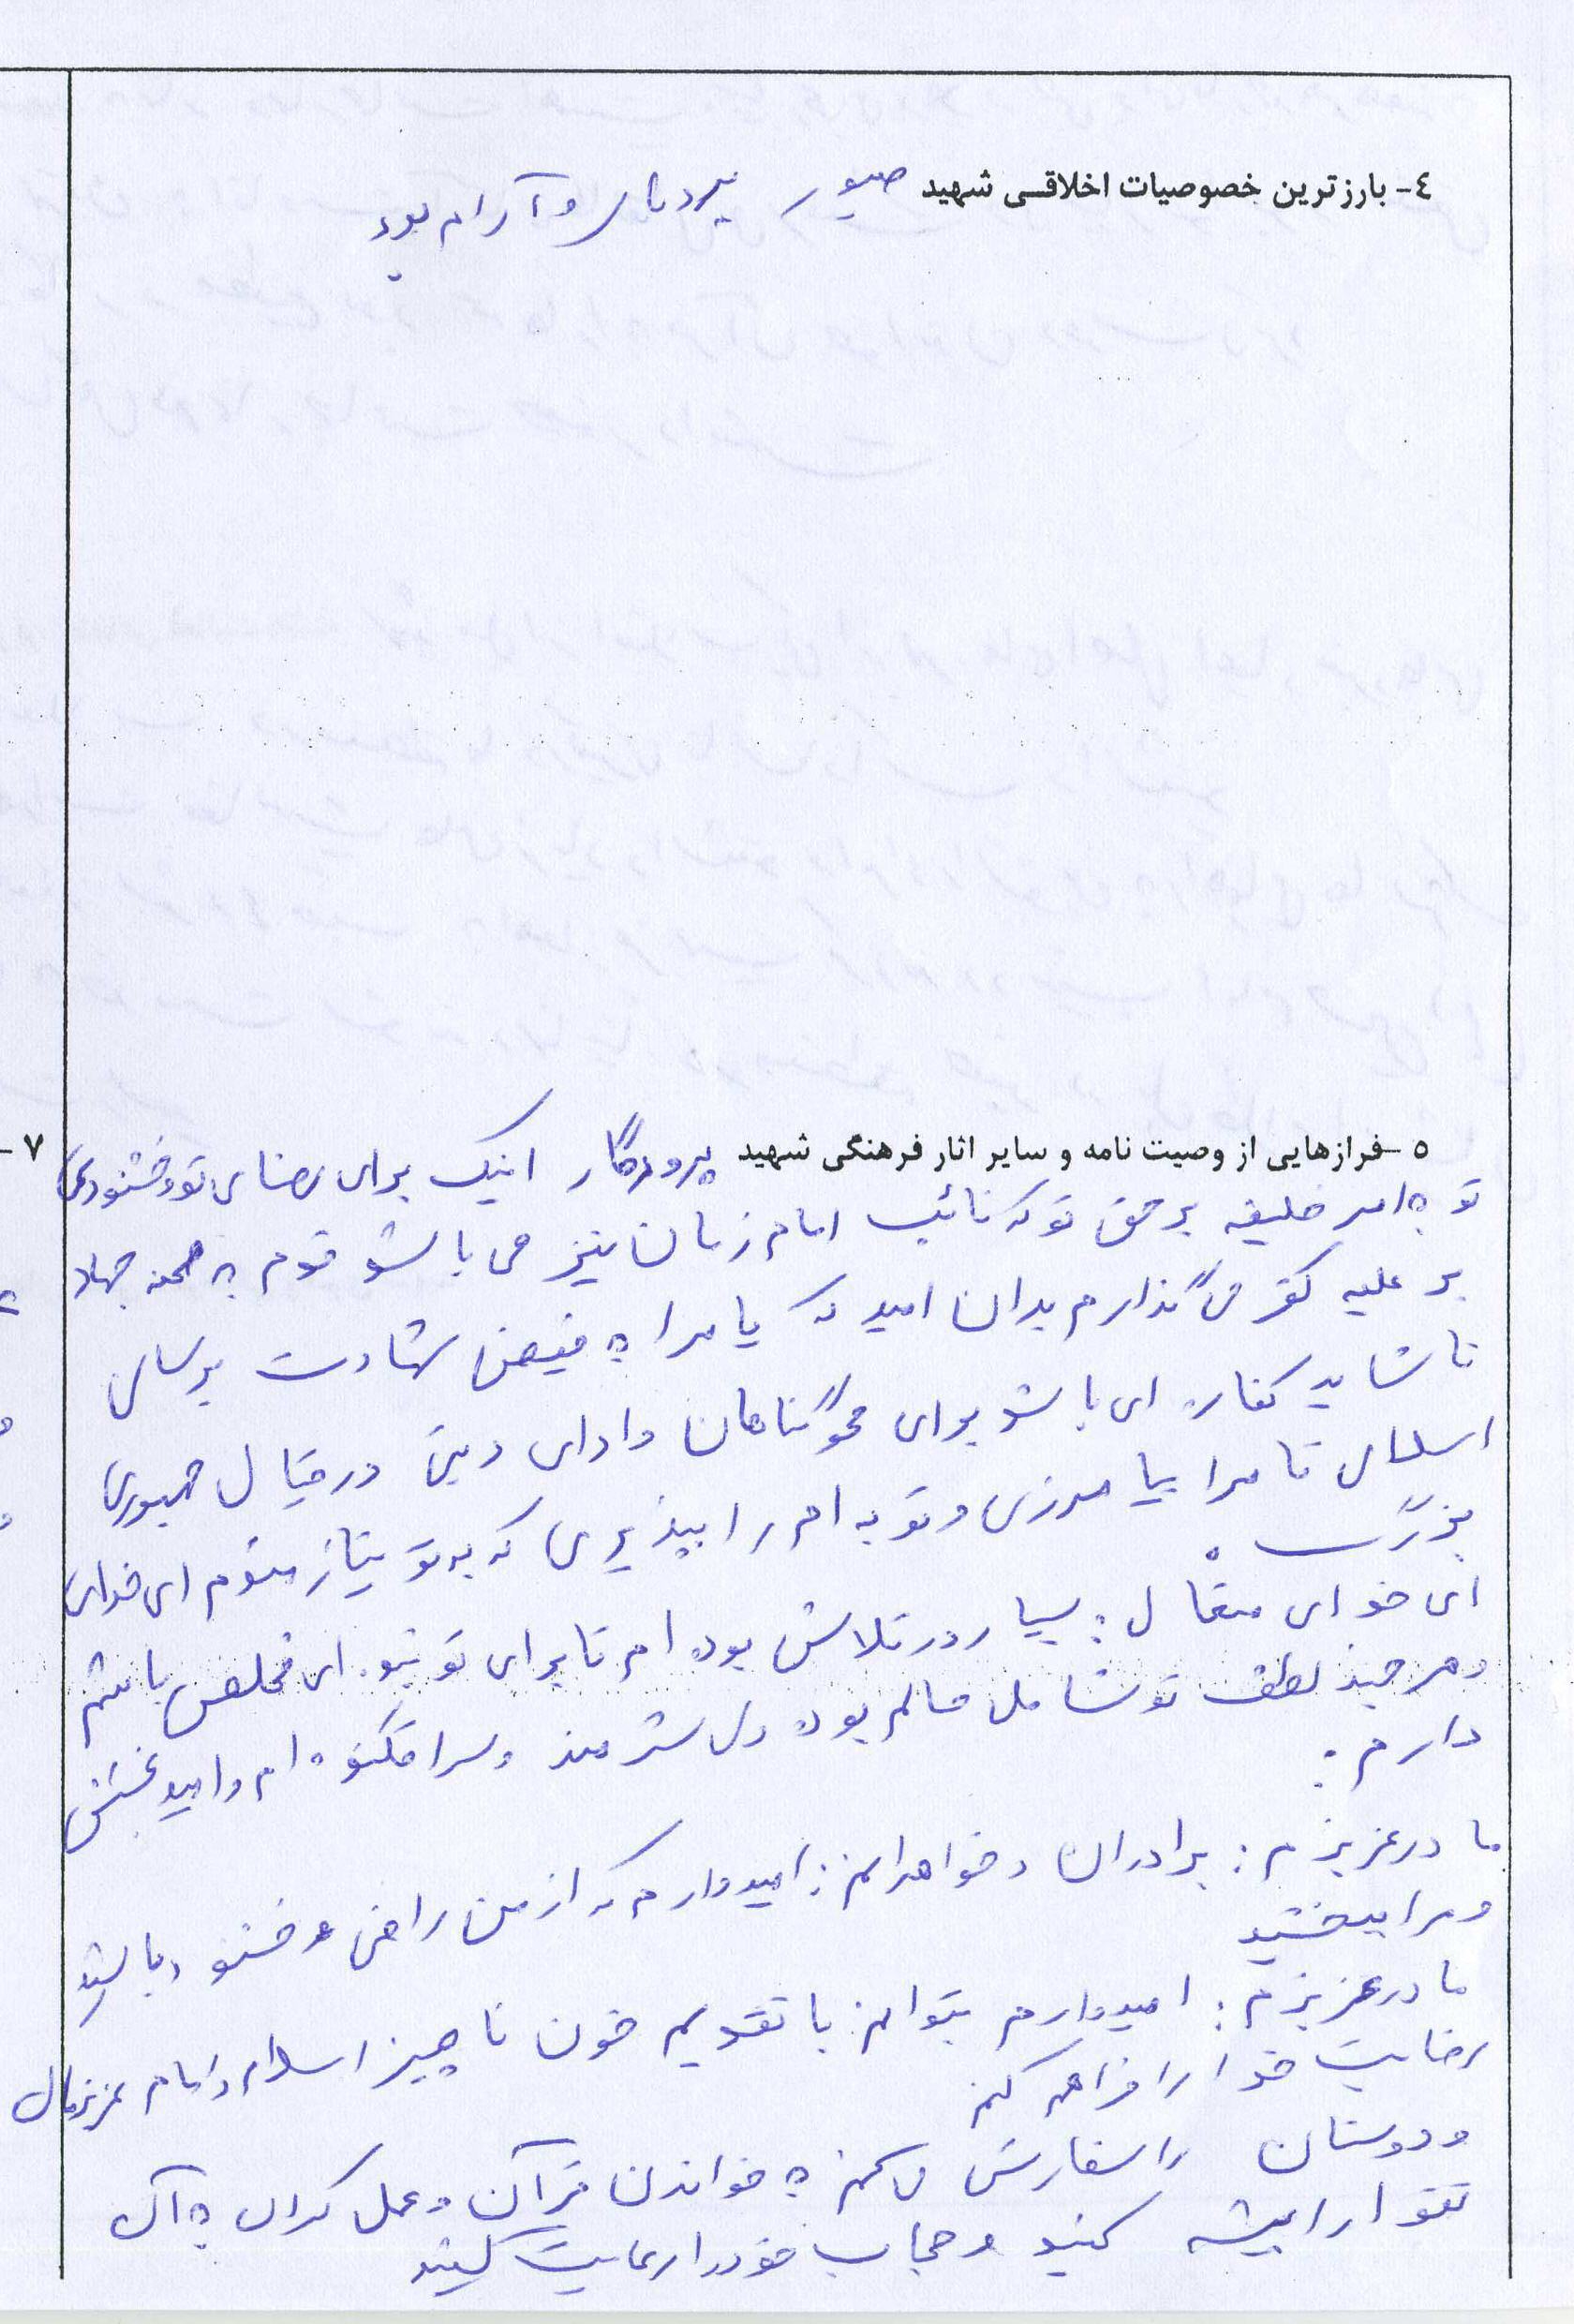 ٤- بارزترین خصوصیات اخلاقی شهید صبور بردبار و آرام بود
٥- فرازهایی از وصیت نامه و سایر اثار فرهنگی شهید پروردگار اینک برای رضای تو و خشنودی
تو به امر خلیفه بر حق تو که نائب امام زمان نیز می باشد قدم به صحنه جهاد
بر علیه کفر می گذارم بدان امید که یا مرا به فیض شهادت برسانی
تا شاید کفاره ای باشد برای محو گناهان و ادای دین در قبال جمهوری
اسلامی تا مرا بیامرزی و توبه ام را بپذیری که به تو نیازمندم ای خدای
بزرگ
ای خدای متعال: بسیار در تلاش بوده ام تا برای تو بنده ای مخلص باشم
و هر چند لطف تو شامل حالم بوده ولی شرمنده و سرافکنده ام و امید بخشش
دارم.
مادر عزیزم: برادران و خواهرانم: امیدوارم که از من راضی و خشنود باشید
و مرا ببخشید
مادر عزیزم: امیدوارم بتوانم با تقدیم خون ناچیز اسلام و امام عزیزمان
رضایت خدا را فراهم کنم
و دوستان را سفارش می کنم به خواندن قرآن و عمل کردن به آن
تقوا را پیشه کنید و حجاب خود را رعایت کنید
٧-